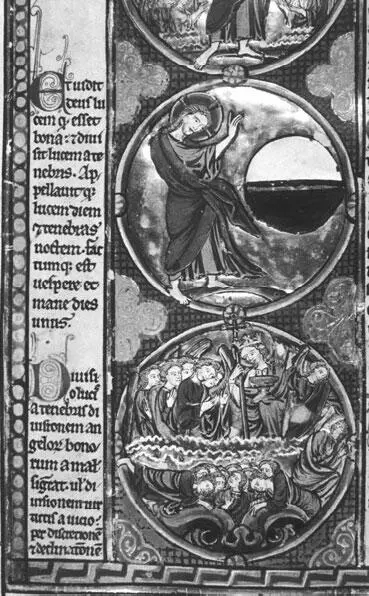 Et uidit
deus lu
cem q esset
bona: ⁊ diui
sit lucem a te
nebris. Ap
pellauitq
lucem diem
⁊ tenebras
noctem. fac
tumq est
uespere et
mane dies
unus.
Diuisi
o lucis
a tenebris di
uisionem an
gelor bono
rum a mal
signat. ul di
uisionem uir
tutis a uicio
per discretionem
⁊ declinationem